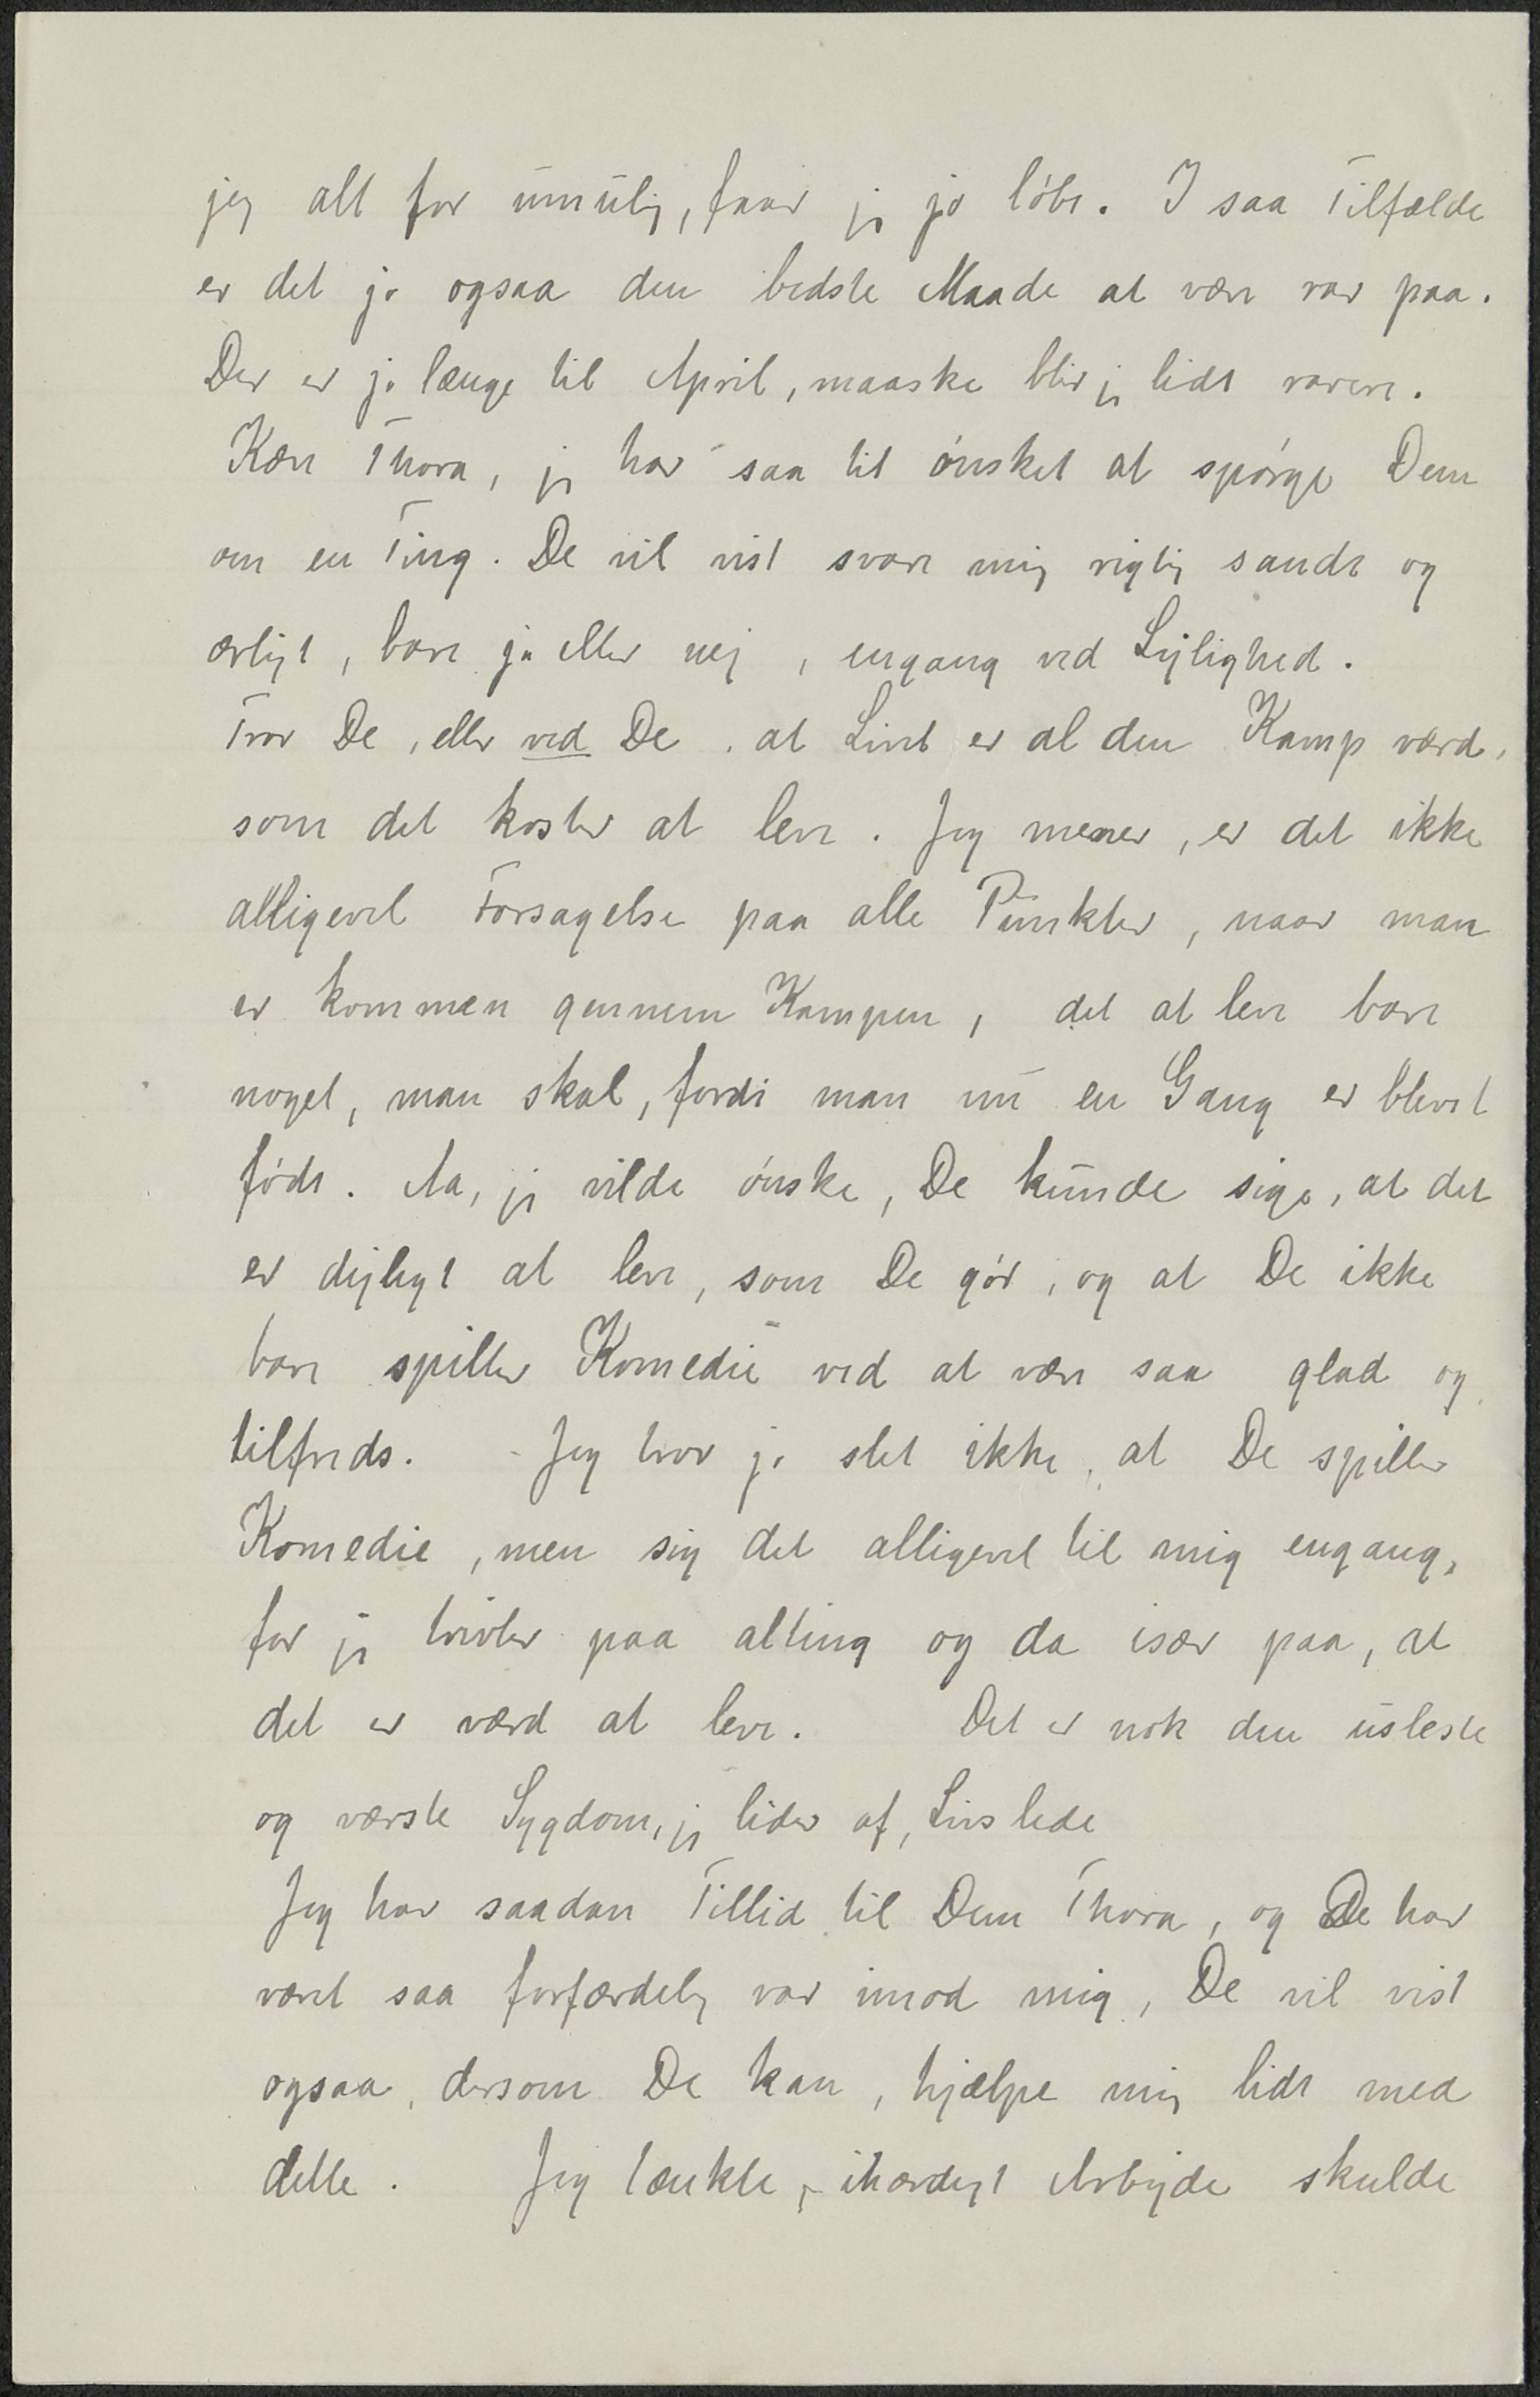 jeg alt for umulig, faar jeg jo løbe. I saa Tilfælde
er det jo ogsaa den bedste Maade at være rar paa.
Der er jo længe til April, maaske blir jeg lidt rarere.
Kære Thora, jeg har saa tit ønsket at spørge Dem
om en Ting. De vil vist svare mig rigtig sandt og
ærligt, bare ja eller nej, engang ved Lejlighed.
Tror De, eller ved De, at Livet er al den Kamp værd,
som det koster at leve. Jeg mener, er det ikke
alligevel Forsagelse paa alle Punkter, naar man
er kommen gennem Kampen, det at leve bare
noget, man skal, fordi man nu en Gang er blevet
født. Aa, jeg vilde ønske, De kunde sige, at det
er dejligt at leve, som De gør, og at De ikke
bare spiller Komedie ved at være saa glad og
tilfreds. Jeg tror jo slet ikke, at De spiller
Komedie, men sig det alligevel til mig engang,
for jeg tvivler paa alting og da især paa, at
det er værd at leve. Det er nok den usleste
og værste Sygdom, jeg lider af, Livslede
Jeg har saadan Tillid til Dem Thora, og De har
været saa forfærdelig rar imod mig, De vil vist
ogsaa, dersom De kan, hjælpe mig lidt med
dette. Jeg tænkte, ihærdigt Arbejde skulde